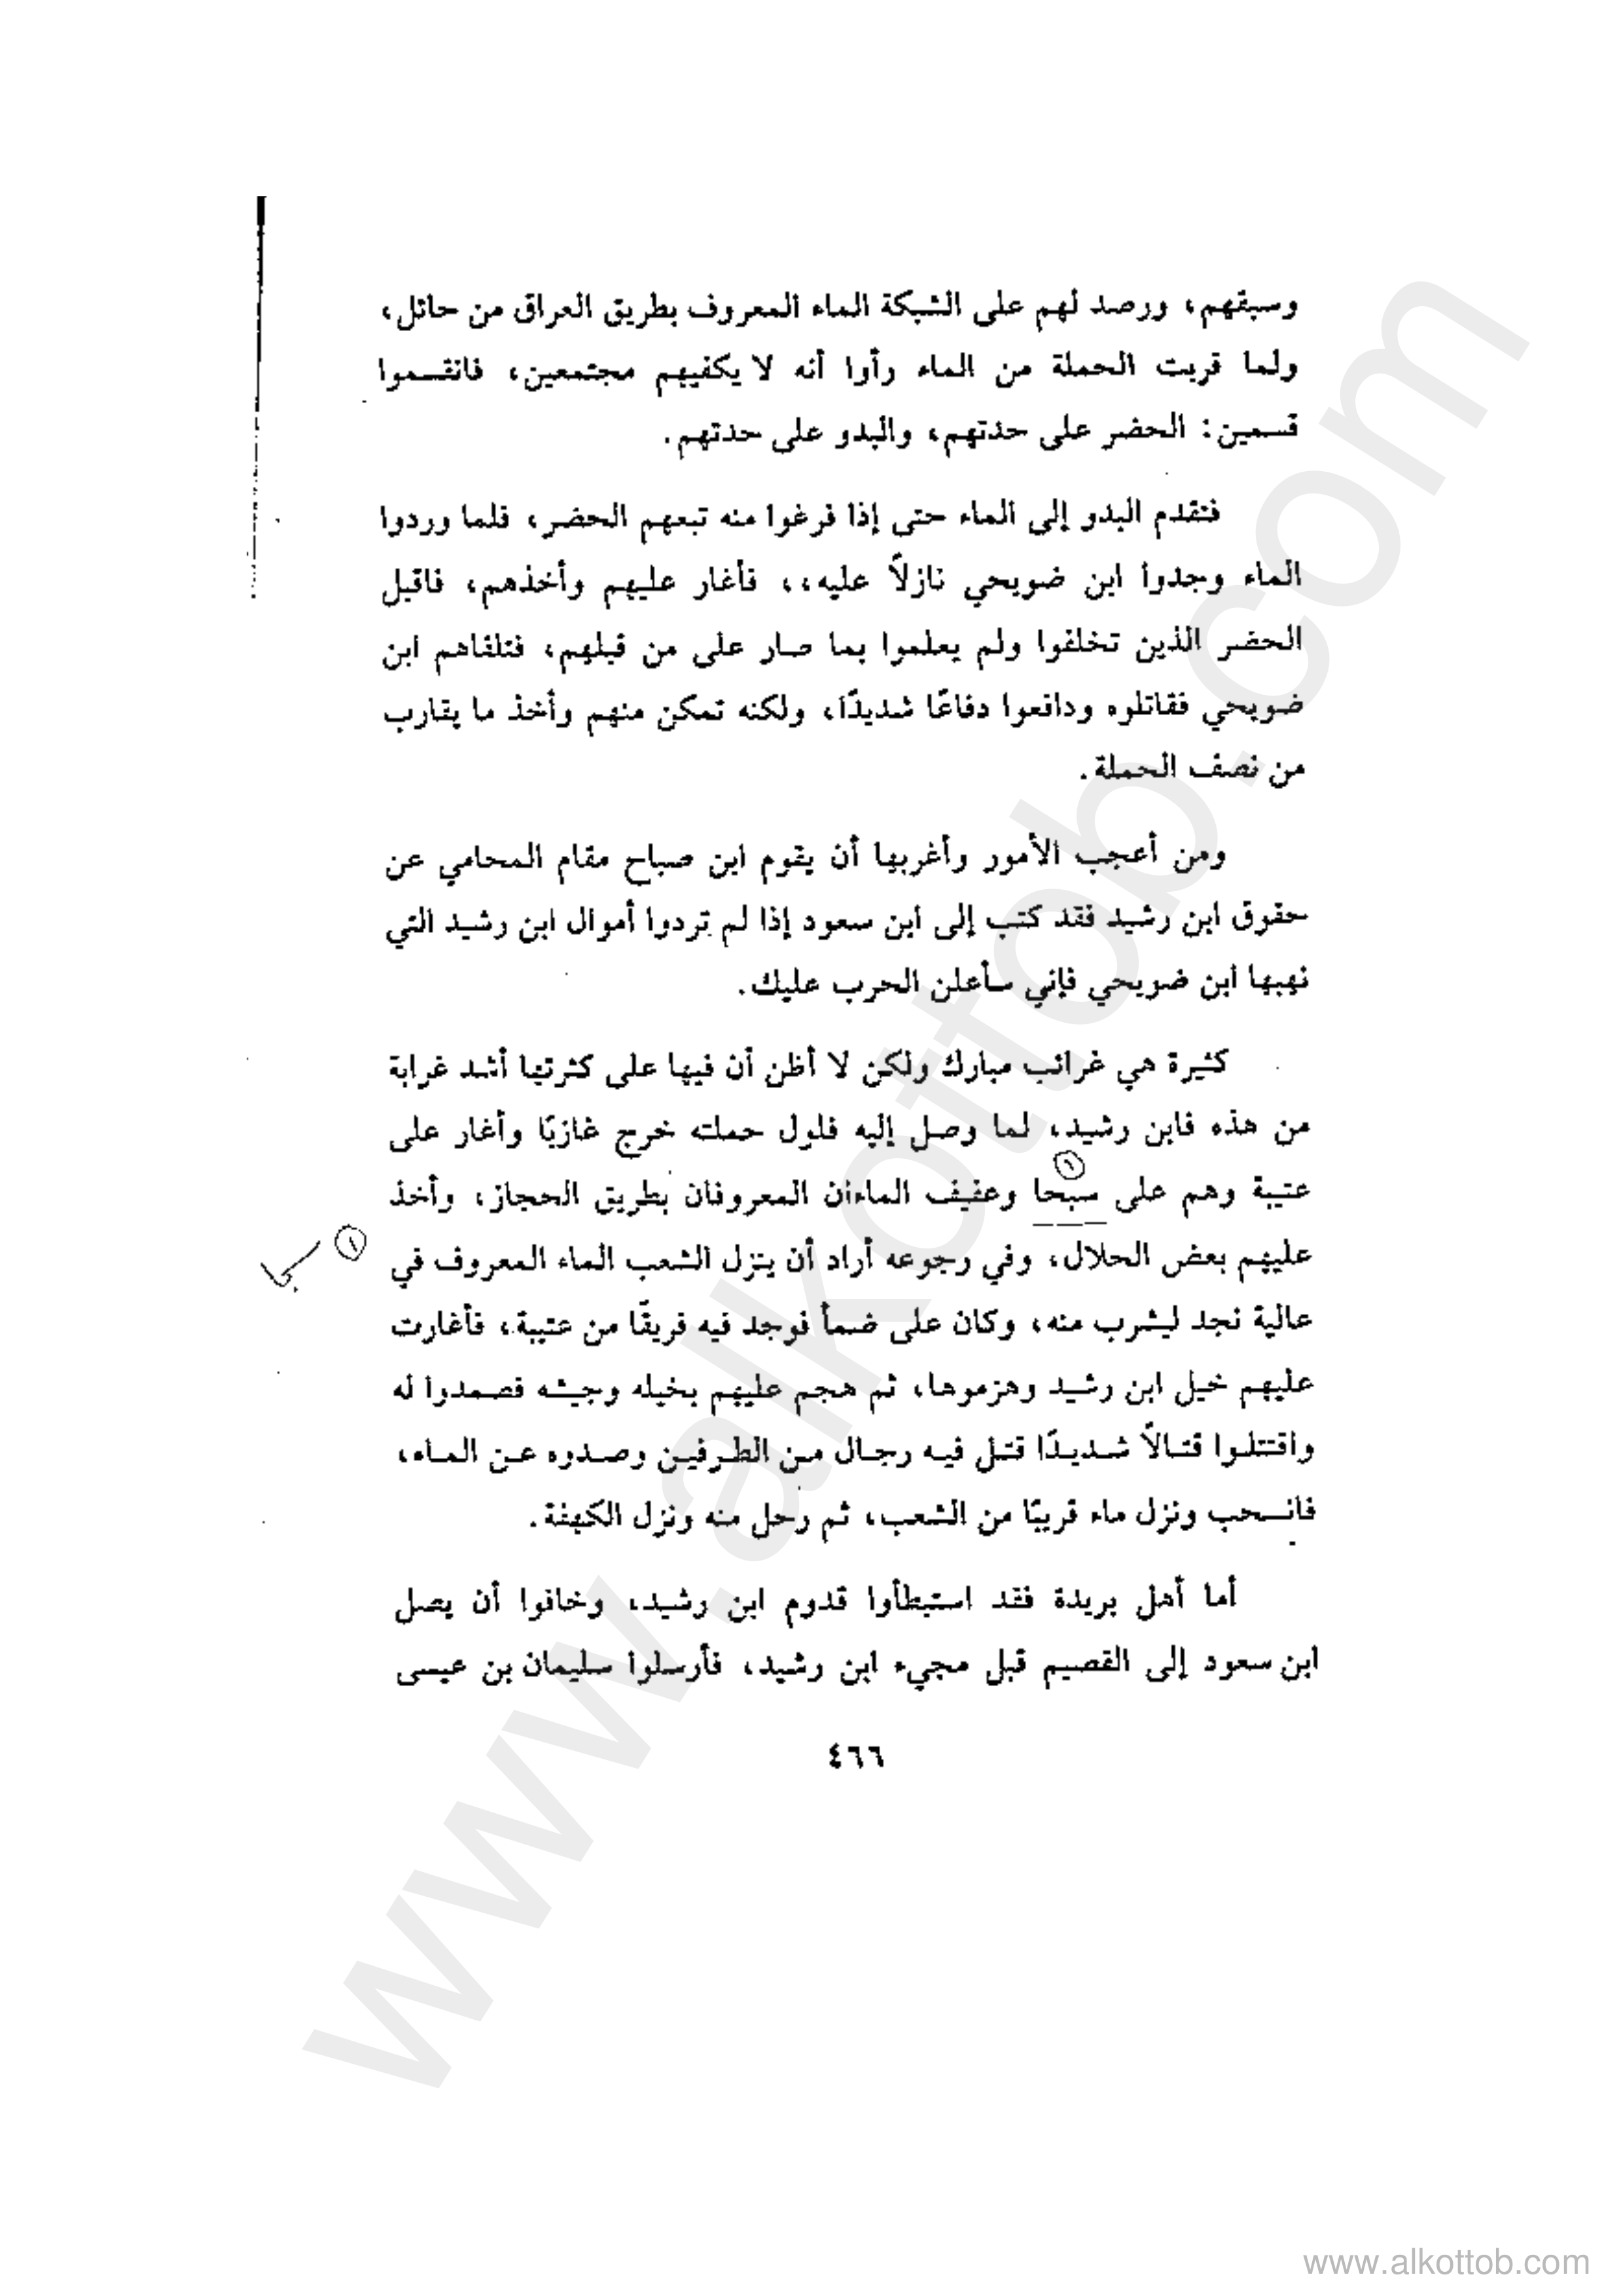 وسبقهم، ورصد لهم على الشبكة الماء المعروف بطريق العراق من حائل،
ولما قربت الحملة من الماء رأوا أنه لا يكفيهم مجتمعين، فانقسموا
قسمين: الحضر على حدتهم، والبدو على حدتهم.
فتقدم البدو إلى الماء حتى إذا فرغوا منه تبعهم الحضر، فلما وردوا
الماء وجدوا ابن ضويحي نازلاً عليه،، فأغار عليهم وأخذهم، فاقبل
الحضر الذين تخلفوا ولم يعلموا بما صار على من قبلهم، فتلقاهم ابن
ضويحي فقاتلوه ودافعوا دفاعًا شديدًا، ولكنه تمكن منهم وأخذ ما يقارب
من نصف الحملة.
ومن أعجب الأمور وأغربها أن يقوم ابن صباح مقام المحامي عن
حقوق ابن رشيد فقد كتب إلى ابن سعود إذا لم تردوا أموال ابن رشيد التي
نهبها ابن ضويحي فإني سأعلن الحرب عليك.
كثيرة هي غرائب مبارك ولكن لا أظن أن فيها على كثرتها أشد غرابة
من هذه فابن رشيد، لما وصل إليه فلول حملته خرج غازيًا وأغار على
١
عتيبة وهم على سبحا وعفيف الماءان المعروفان بطريق الحجاز، وأخذ
١
عليهم بعض الحلال، وفي رجوعه أراد أن ينزل الشعب الماء المعروف في
عالية نجد ليشرب منه، وكان على ضمأ فوجد فيه فريقًا من عتيبة، فأغارت
عليهم خيل ابن رشيد وهزموها، ثم هجم عليهم بخيله وجيشه فصمدوا له
واقتتلوا قتالاً شديدًا قتل فيه رجال من الطرفين وصدوه عن الماء،
فانسحب ونزل ماء قريبًا من الشعب، ثم رحل منه ونزل الكهفة.
أما أهل بريدة فقد استبطأوا قدوم ابن رشيد، وخافوا أن يصل
ابن سعود إلى القصيم قبل مجيء ابن رشيد، فأرسلوا سليمان بن عيسى
٤٦٦
www.alkottob.com
www.alkottob.com